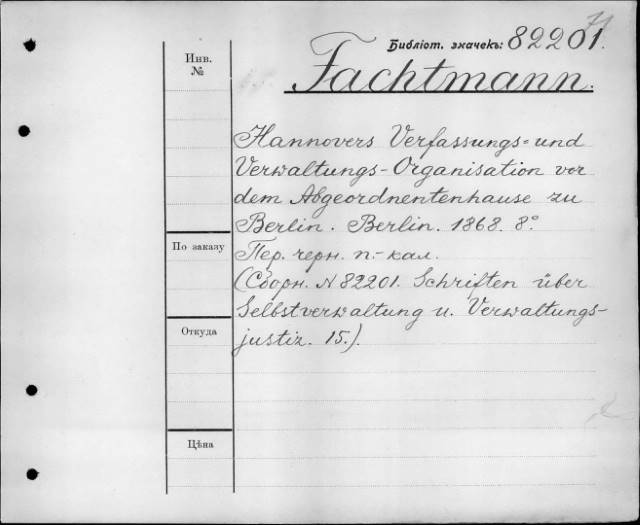 Библіот. значекъ: 82201.
Инв.
№
Fachtmann.
Hannovers Verfassungs= und
Verwaltungs-Organisation vor
dem Abgeordnentenhause zu
Berlin. Berlin. 1868. 8°
По заказу
Пер. черн. п.-кал.
(Сборн. N 82201. Schriften über
Selbstverwaltung u. Verwaltungs-
Откуда
justiz. 15.).
Цѣна